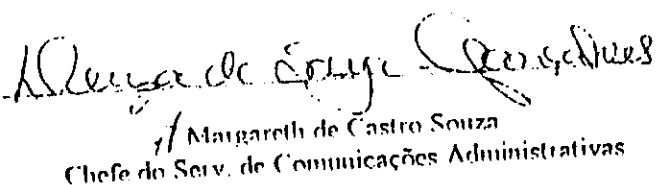 de Souza Gonçalves
p/ Margareth de Castro Souza
Chefe do Serv. de Comunicações Administrativas